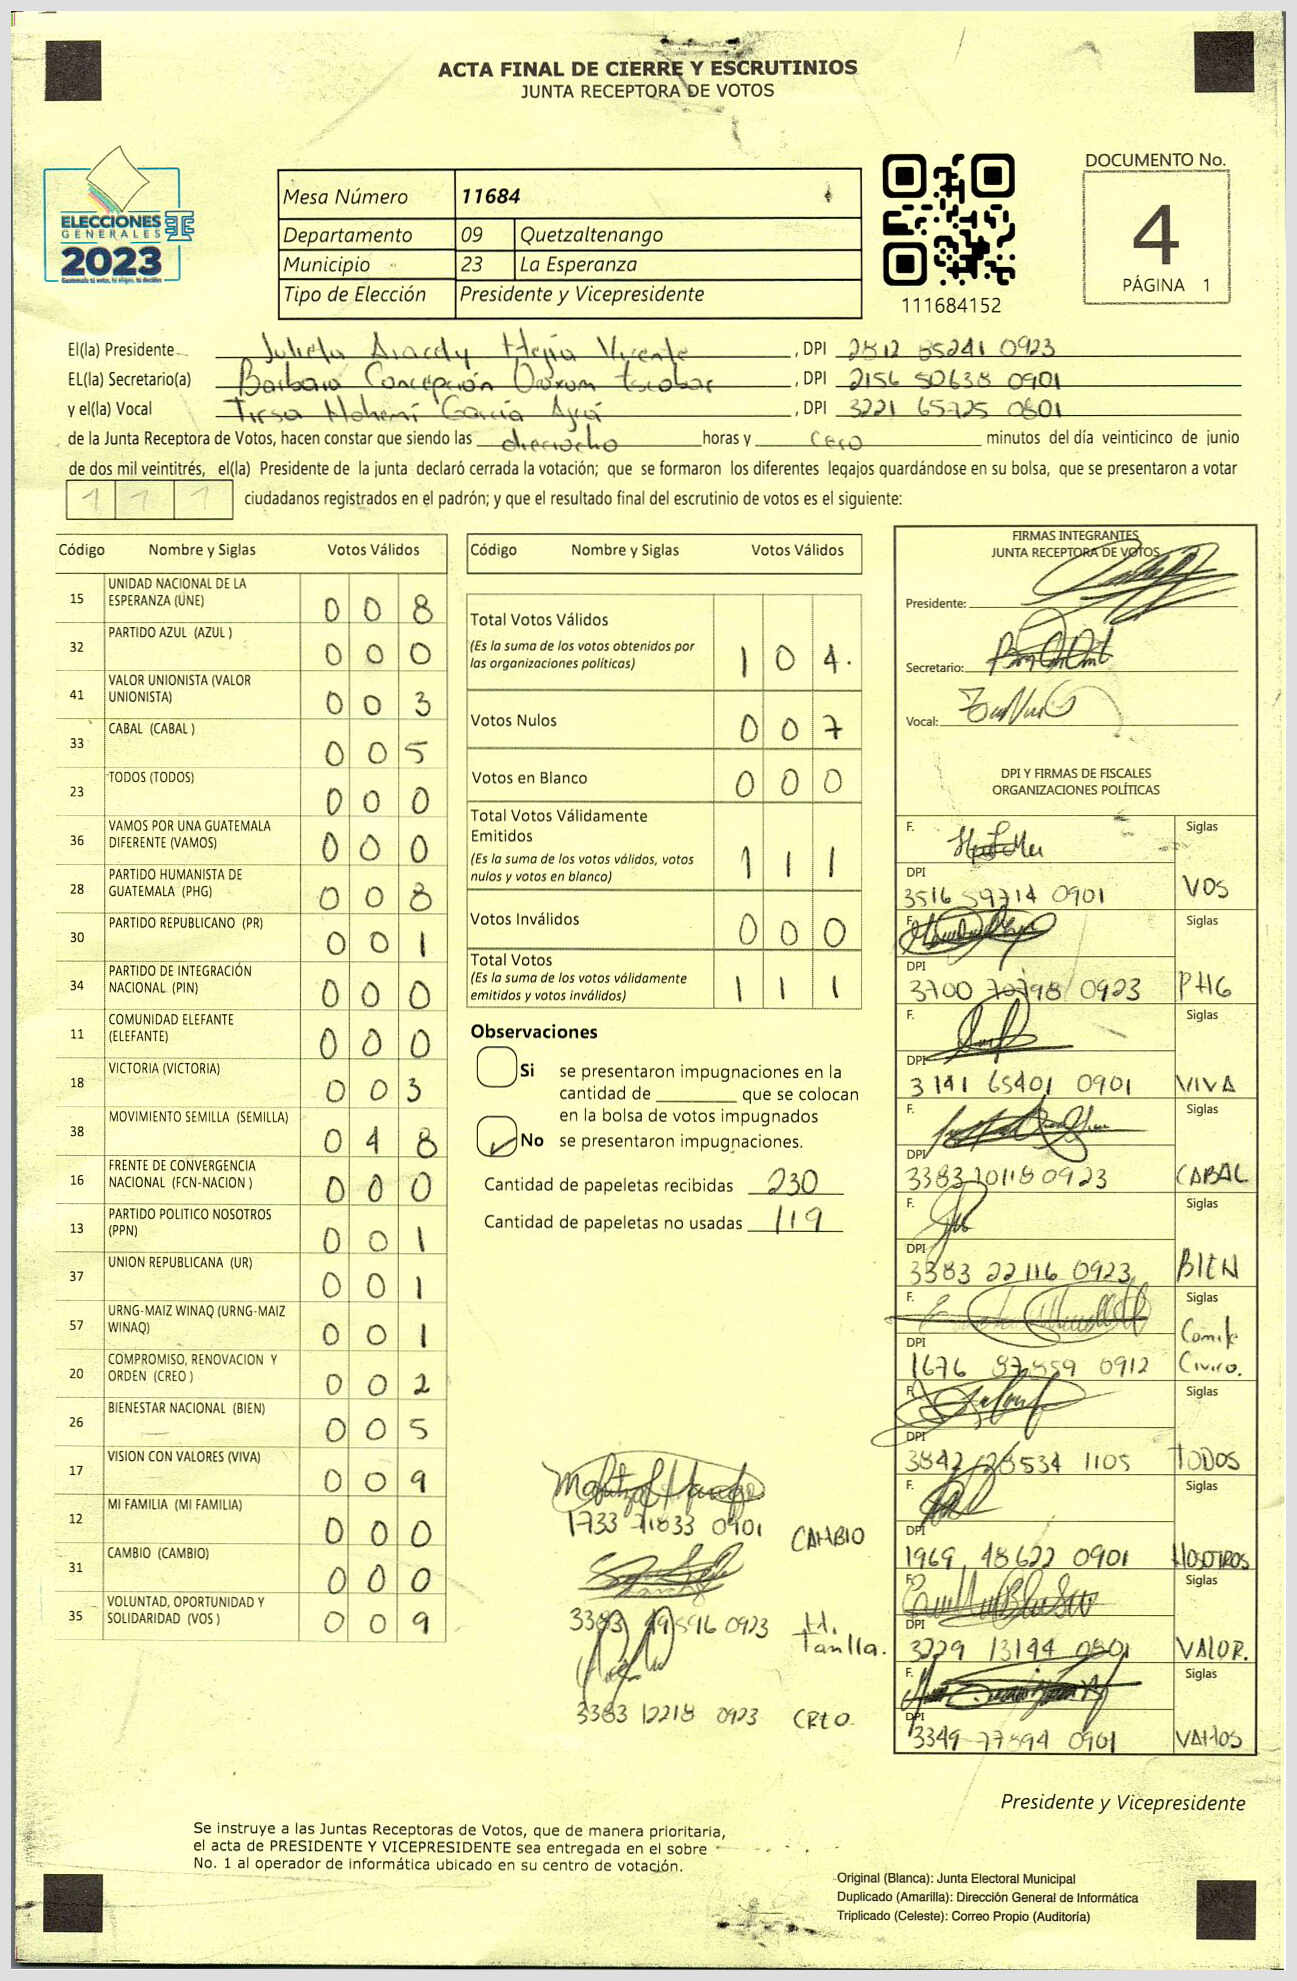 ACTA FINAL DE CIERRE Y ESCRUTINIOS
JUNTA RECEPTORA DE VOTOS
ELECCIONES
GENERALES
2023
Mesa Número 11684
Departamento 09 Quetzaltenango
Municipio 23 La Esperanza
Tipo de Elección Presidente y Vicepresidente
111684152
DOCUMENTO No.
4
PÁGINA 1
El(la) Presidente Julieta Aracely Mejía Vicente, DPI 2812 85241 0923
EL(la) Secretario(a) Barbara Concepción Escobar, DPI 2156 50638 0901
y el(la) Vocal Tirsa Nohemí García, DPI 3221 65725 0801
de la Junta Receptora de Votos, hacen constar que siendo las dieciocho horas y cero minutos del día veinticinco de junio
de dos mil veintitrés, el(la) Presidente de la junta declaró cerrada la votación; que se formaron los diferentes legajos guardándose en su bolsa, que se presentaron a votar
111 ciudadanos registrados en el padrón; y que el resultado final del escrutinio de votos es el siguiente:
Código Nombre y Siglas Votos Válidos
15 UNIDAD NACIONAL DE LA ESPERANZA (UNE) 0 0 8
32 PARTIDO AZUL (AZUL ) 0 0 0
41 VALOR UNIONISTA (VALOR UNIONISTA) 0 0 3
33 CABAL (CABAL ) 0 0 5
23 TODOS (TODOS) 0 0 0
36 VAMOS POR UNA GUATEMALA DIFERENTE (VAMOS) 0 0 0
28 PARTIDO HUMANISTA DE GUATEMALA (PHG) 0 0 8
30 PARTIDO REPUBLICANO (PR) 0 0 1
34 PARTIDO DE INTEGRACIÓN NACIONAL (PIN) 0 0 0
11 COMUNIDAD ELEFANTE (ELEFANTE) 0 0 0
18 VICTORIA (VICTORIA) 0 0 3
38 MOVIMIENTO SEMILLA (SEMILLA) 0 4 8
16 FRENTE DE CONVERGENCIA NACIONAL (FCN-NACION ) 0 0 0
13 PARTIDO POLITICO NOSOTROS (PPN) 0 0 1
37 UNION REPUBLICANA (UR) 0 0 1
57 URNG-MAIZ WINAQ (URNG-MAIZ WINAQ) 0 0 1
20 COMPROMISO, RENOVACION Y ORDEN (CREO ) 0 0 2
26 BIENESTAR NACIONAL (BIEN) 0 0 5
17 VISION CON VALORES (VIVA) 0 0 9
12 MI FAMILIA (MI FAMILIA) 0 0 0
31 CAMBIO (CAMBIO) 0 0 0
35 VOLUNTAD, OPORTUNIDAD Y SOLIDARIDAD (VOS ) 0 0 9
Código Nombre y Siglas Votos Válidos
Total Votos Válidos 1 0 4.
(Es la suma de los votos obtenidos por
las organizaciones políticas)
Votos Nulos 0 0 7
Votos en Blanco 0 0 0
Total Votos Válidamente
Emitidos 1 1 1
(Es la suma de los votos válidos, votos
nulos y votos en blanco)
Votos Inválidos 0 0 0
Total Votos 1 1 1
(Es la suma de los votos válidamente
emitidos y votos inválidos)
Observaciones
Si se presentaron impugnaciones en la
cantidad de ________ que se colocan
en la bolsa de votos impugnados
No se presentaron impugnaciones.
Cantidad de papeletas recibidas 230
Cantidad de papeletas no usadas 119
1733 71833 0901 CAMBIO
0923
3383 12218 0923 CREO
FIRMAS INTEGRANTES
JUNTA RECEPTORA DE VOTOS
Presidente:
Secretario:
Vocal:
DPI Y FIRMAS DE FISCALES
ORGANIZACIONES POLÍTICAS
F. Siglas
DPI
3516 59714 0901 VOS
F. Siglas
DPI
3700 0923 PHG
F. Siglas
DPI
3141 65401 0901 VIVA
F. Siglas
DPI
3383 10118 0923 CABAL
F. Siglas
DPI
3383 22116 0923 BIEN
F. Siglas
DPI
1676 87859 0912 Comite Civico.
F. Siglas
DPI
3842 28534 1105 TODOS
F. Siglas
DPI
1969 48622 0901 NOSOTROS
F. Siglas
DPI
3229 13144 0801 VALOR.
F. Siglas
DPI
3349 77894 0901 VAMOS
Presidente y Vicepresidente
Se instruye a las Juntas Receptoras de Votos, que de manera prioritaria,
el acta de PRESIDENTE Y VICEPRESIDENTE sea entregada en el sobre
No. 1 al operador de informática ubicado en su centro de votación.
Original (Blanca): Junta Electoral Municipal
Duplicado (Amarilla): Dirección General de Informática
Triplicado (Celeste): Correo Propio (Auditoría)